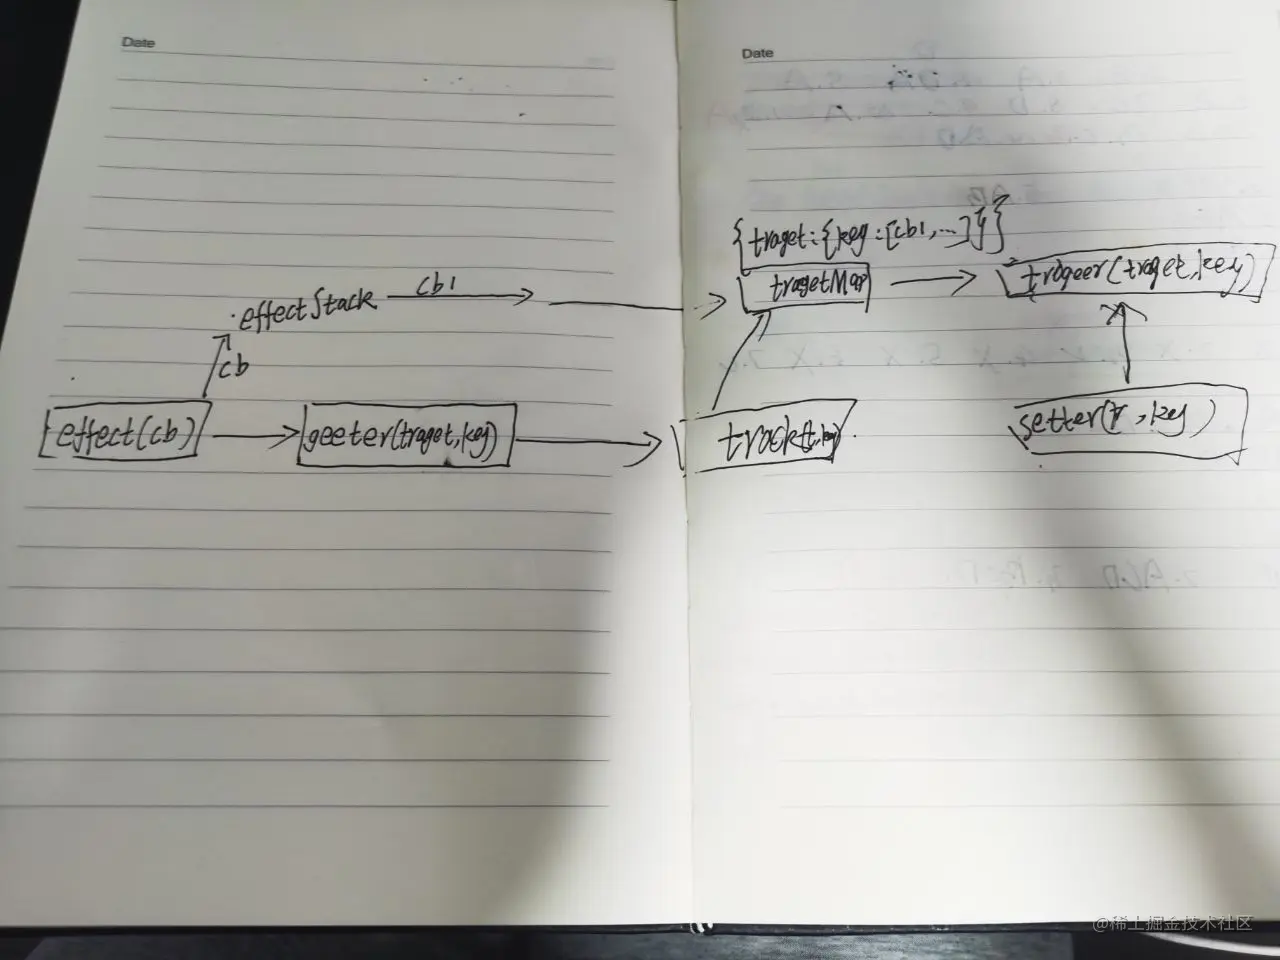 Date
Date
{traget:{key:[cb1,...]}}
tragetMap
trigeer(traget,key)
effectStack
cb1
cb
effect(cb)
geeter(traget,key)
track(t,key)
setter(t,key)
@稀土掘金技术社区